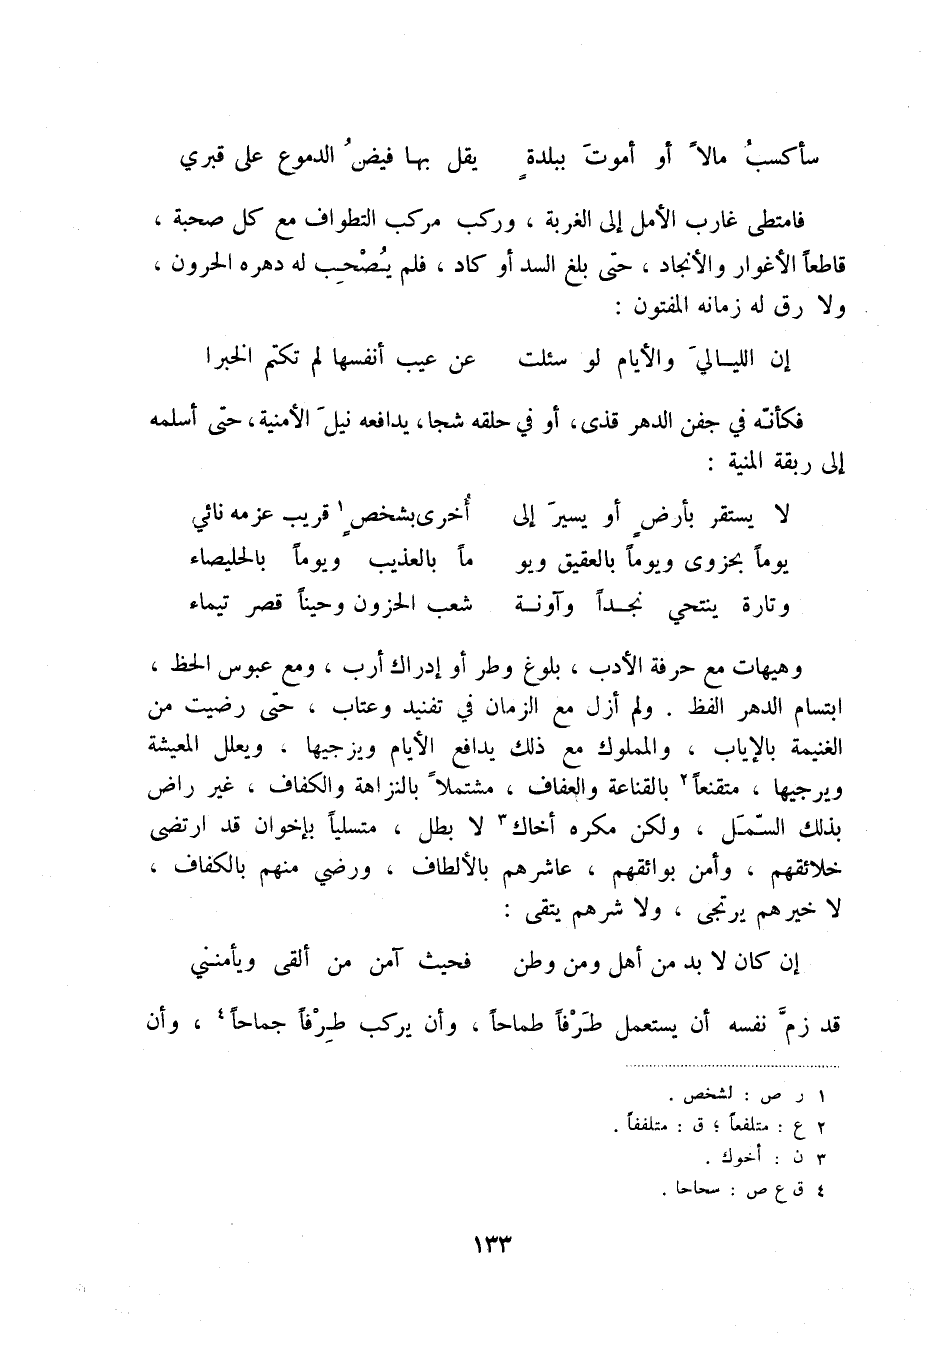 سأكسبُ مالاً أو أموتَ ببلدةٍ يقل بها فيضُ الدموع على قبري
فامتطى غارب الأمل إلى الغربة ، وركب مركب التطواف مع كل صحبة ،
قاطعاً الأغوار والأنجاد ، حتّى بلغ السد أو كاد ، فلم يُصْحِب له دهره الحرون ،
ولا رق له زمانه المفتون :
إن الليـاليَ والأيام لو سئلت عن عيب أنفسها لم تكتم الخبرا
فكأنّه في جفن الدهر قذى، أو في حلقه شجا، يدافعه نيلَ الأمنية، حتّى أسلمه
إلى ربقة المنية :
لا يستقر بأرضٍ أو يسيرَ إلى أُخرى بشخصٍ١ قريب عزمه نائي
يوماً بحزوى ويوماً بالعقيق ويو ماً بالعذيب ويوماً بالخليصاء
وتارة ينتحي نجـداً وآونـة شعب الحزون وحيناً قصر تيماء
وهيهات مع حرفة الأدب ، بلوغ وطر أو إدراك أرب ، ومع عبوس الحظ ،
ابتسام الدهر الفظ . ولم أزل مع الزمان في تفنيد وعتاب ، حتّى رضيت من
الغنيمة بالإياب ، والمملوك مع ذلك يدافع الأيام ويزجيها ، ويعلل المعيشة
ويرجيها ، متقنعاً٢ بالقناعة والعفاف ، مشتملاً بالنزاهة والكفاف ، غير راض
بذلك السّمَل ، ولكن مكره أخاك٣ لا بطل ، متسلياً بإخوان قد ارتضى
خلائقهم ، وأمن بوائقهم ، عاشرهم بالألطاف ، ورضي منهم بالكفاف ،
لا خيرهم يرتجى ، ولا شرهم يتقى :
إن كان لا بد من أهل ومن وطن فحيث آمن من ألقى ويأمنـني
قد زمَّ نفسه أن يستعمل طَرْفاً طماحاً ، وأن يركب طِرْفاً جماحاً٤ ، وأن
١ ر ص : لشخص .
٢ ع : متلفعاً ؛ ق : متلففاً .
٣ ن : أخوك .
٤ ق ع ص : سحاحا .
١٣٣